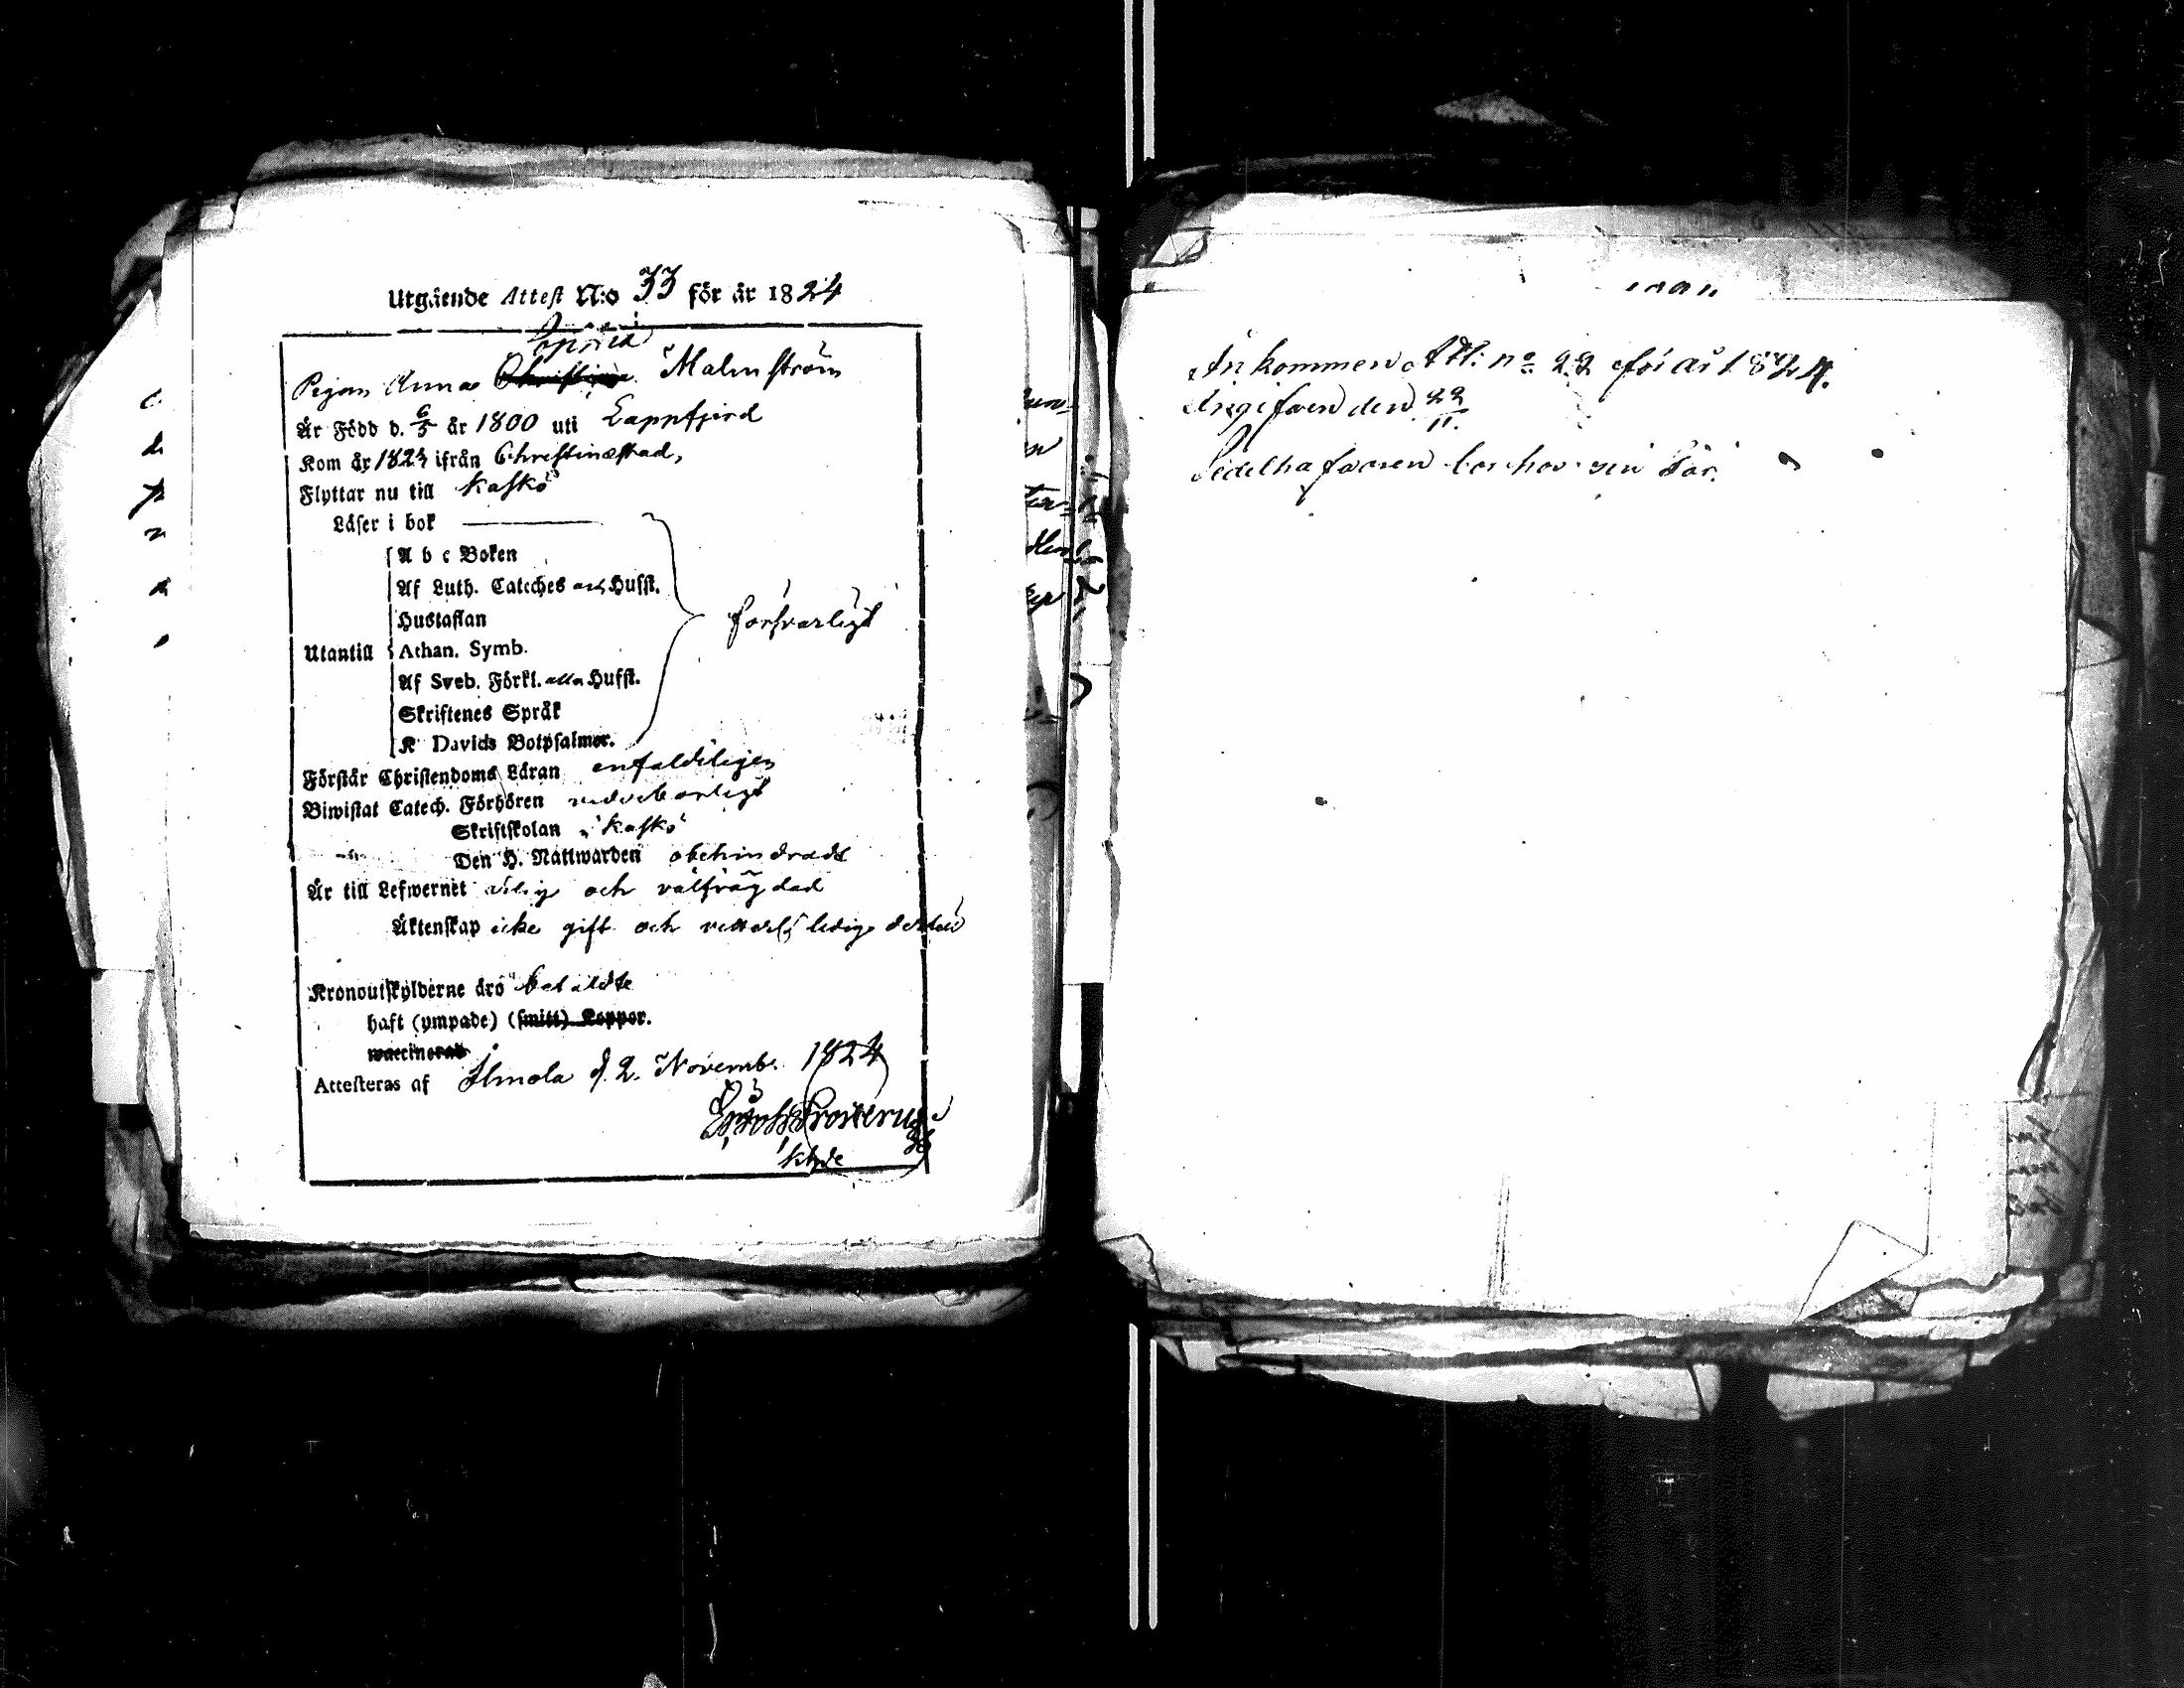 Utgående Attest N:o 33 för år 1824
Sophia
Pigan Anna Christina Malmström
Är Född d. 6/3 år 1800 uti Lappfjerd
Kom år 1823 ifrån Christinæstad,
Flyttar nu till Kaskö
Läser i bok
A b c Boken
Af Luth. Cateches och Husst.
Hustaflan
Utantill Athan. Symb.
Af Sveb. Förkl. alla Husst.
Skriftenes Språk
K Davids Botpsalmer.
försvarligt
Förstår Christendoms Läran enfaldeligen
Biwistat Catech. Förhören vederbörligt
Skriftskolan i Kaskö
Den H. Nattwarden obehindradt
Är till Lefwernet ärlig och välfrägdad
Äktenskap icke gift och ledig
Kronoutskylderne äro betaldte
haft (ympade) (smitt) Koppor.
waccinerad
Attesteras af Ilmola d. 2. Novemb. 1824
Ankommen Att: no 22 för år 1824.
Angifven den 22/11.
Sedelhafvaren bor hos sin Far.